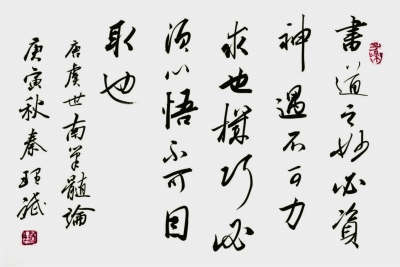 書道之妙必資
神遇不可力
求也機巧必
須心悟不可目
取也
唐虞世南筆髓論
庚寅秋秦